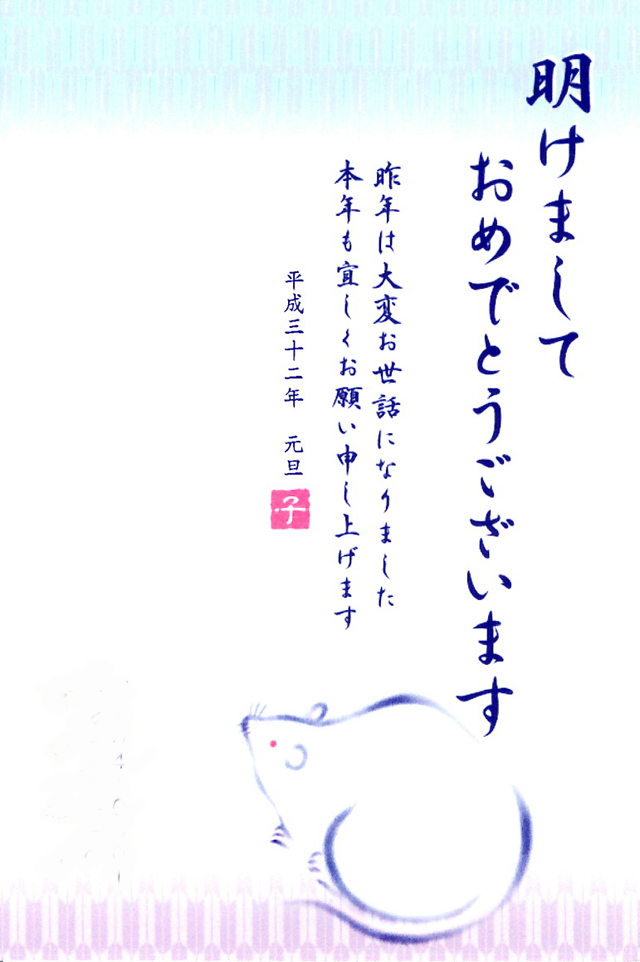 明けまして
おめでとうございます
昨年は大変お世話になりました
本年も宜しくお願い申し上げます
平成三十二年 元旦
子